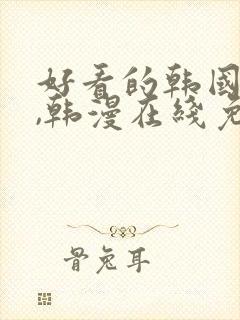 好看的韩国
,韩漫在线免
骨兔耳